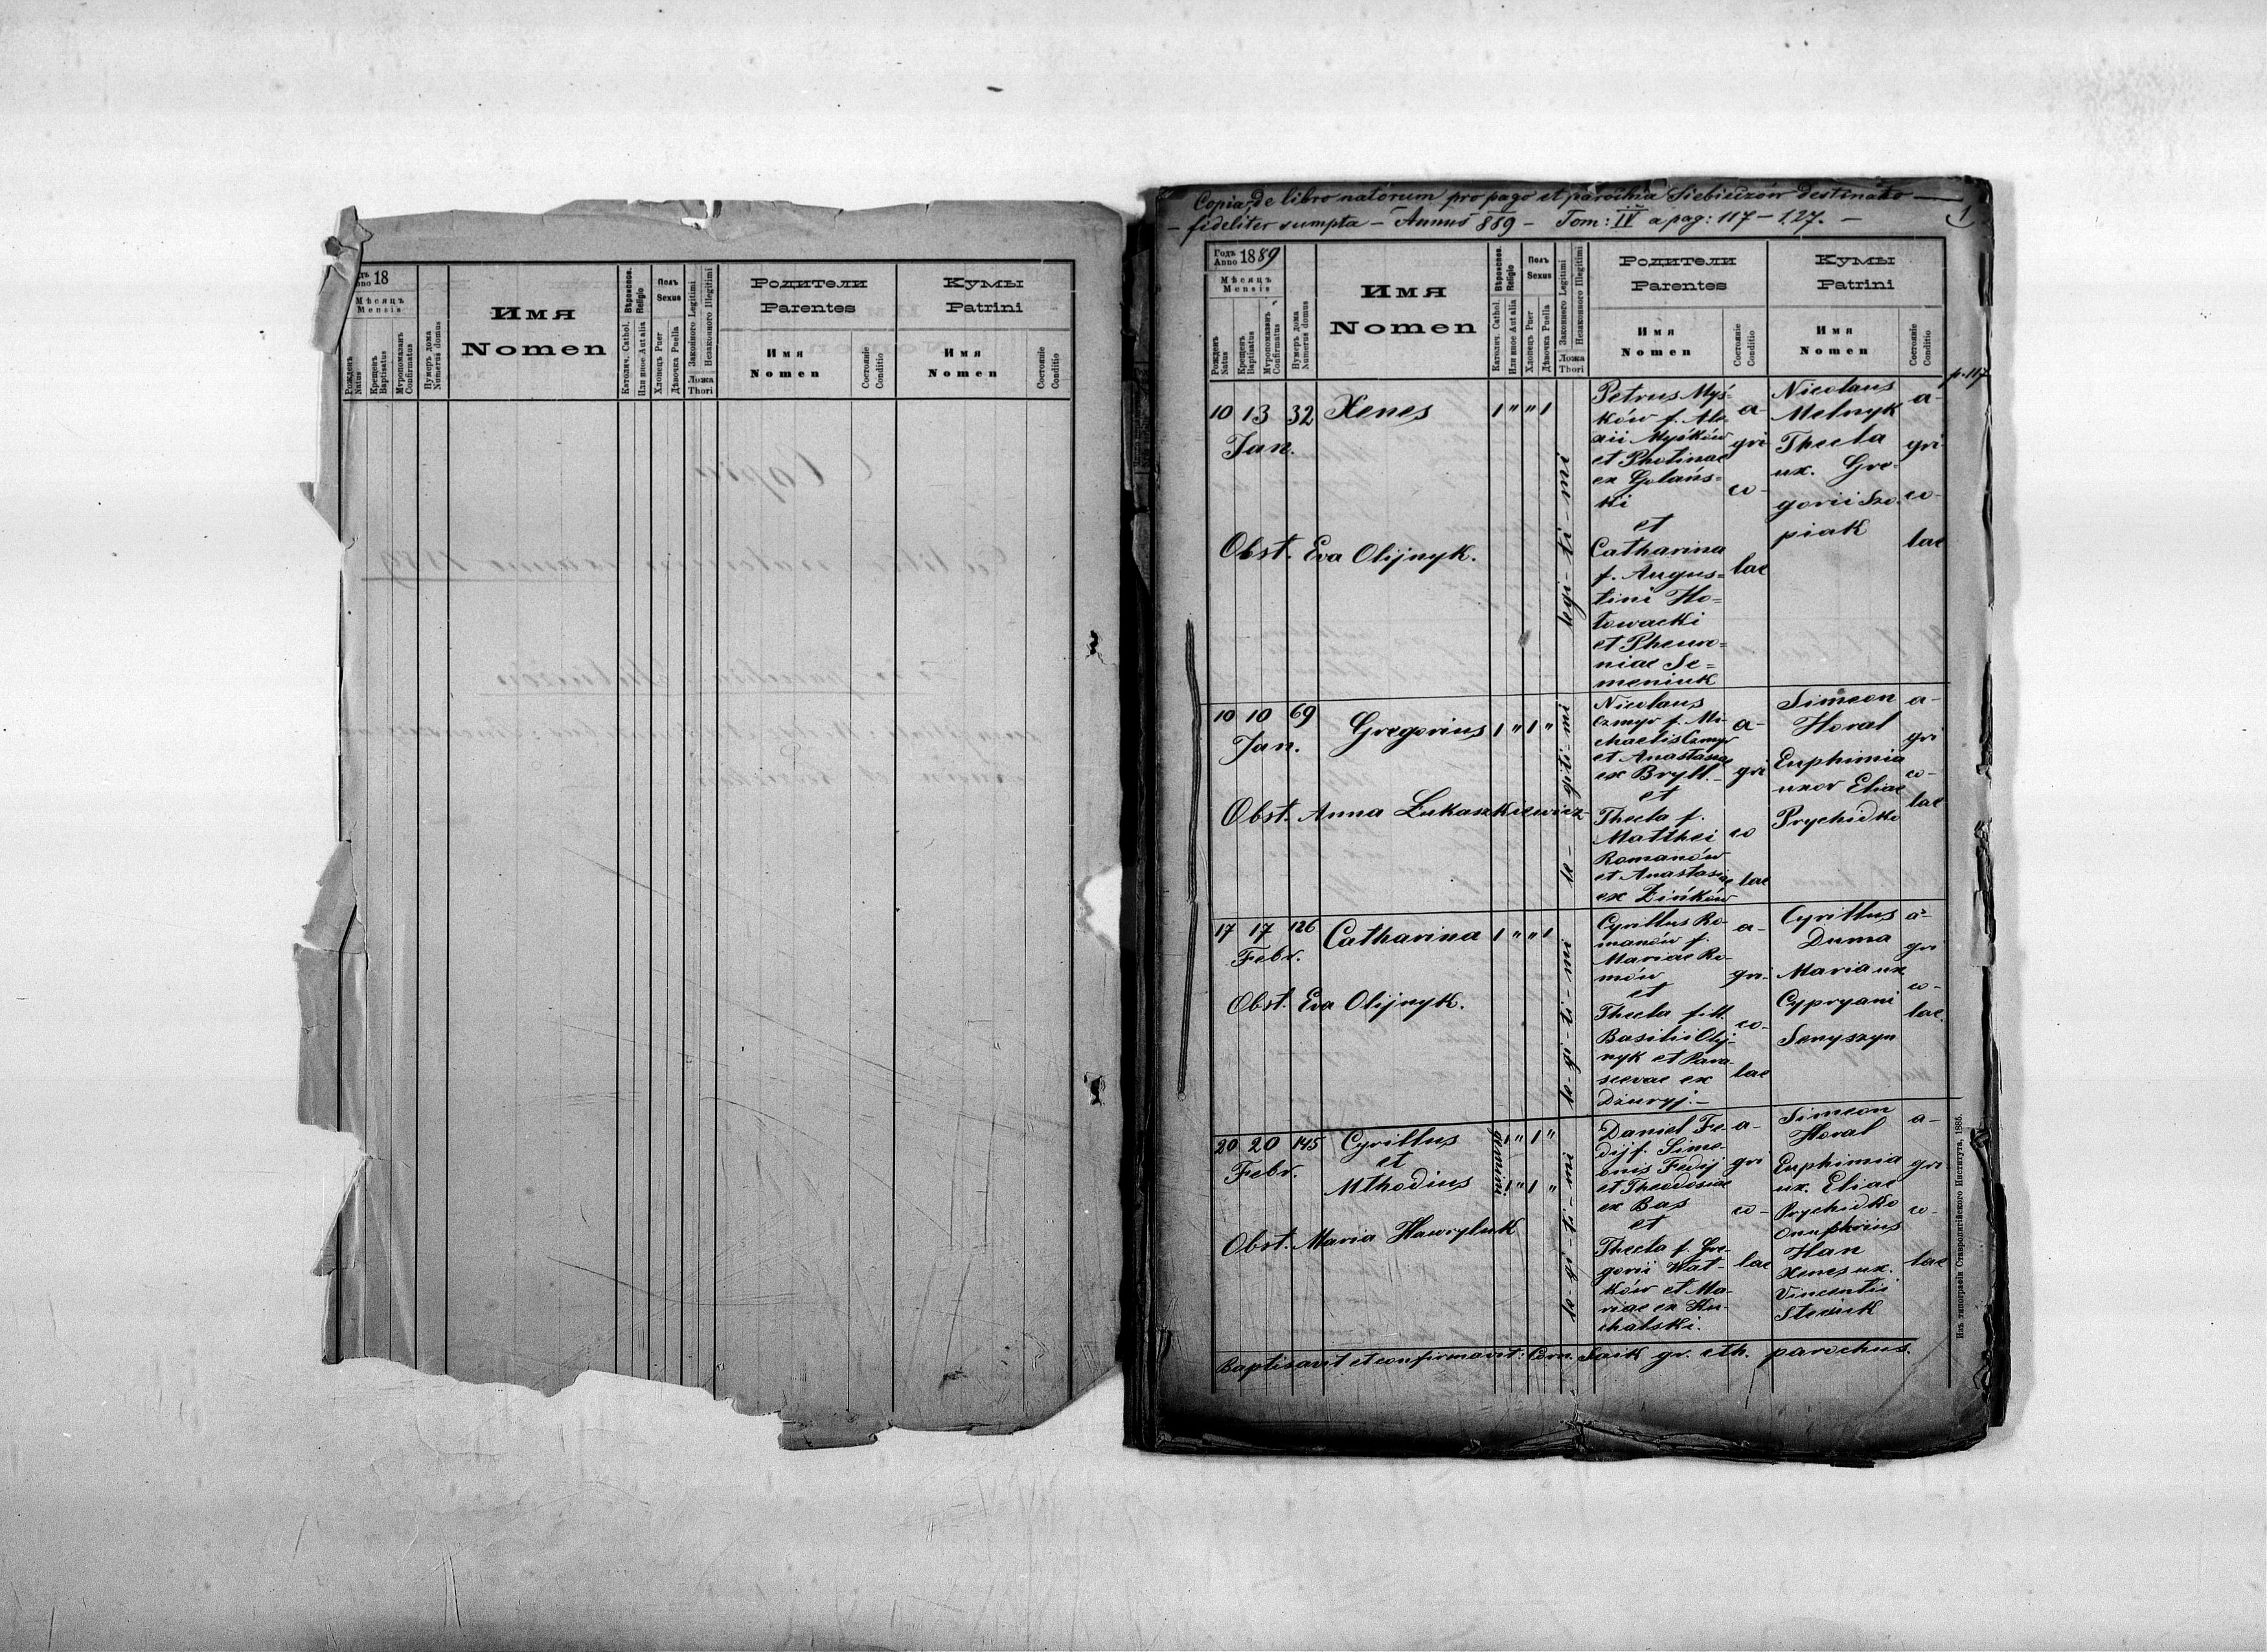 18
Мѣсяцъ
Mensis
Рожденъ
Natus
Крещенъ
Baptisatus
Мѵропомазанъ
Confirmatus
Нумеръ дома
Numerus domus
Имя
Nomen
Католич. Cathol.
Или иное Aut alia
Вѣроисповѣд.
Religio
Полъ
Sexus
Хлопецъ Puer
Дѣвочка Puella
Законного Legitimi
Незаконного Illegitimi
Ложа
Thori
Родители
Parentes
Имя
Nomen
Состояніе
Conditio
Кумы
Patrini
Имя
Nomen
Состояніе
Conditio
Copia de libro natorum pro pago et parochia Siebieczów destinato
fideliter sumpta – Annus 889 – Tom: IV a pag: 117 – 127. –
1
Годъ
Anno 1889
Мѣсяцъ
Mensis
Рожденъ
Natus
Крещенъ
Baptisatus
Мѵропомазанъ
Confirmatus
Нумеръ дома
Numerus domus
Имя
Nomen
Католич. Cathol.
Или иное Aut alia
Religio
Полъ
Sexus
Хлопецъ Puer
Дѣвочка Puella
Законного Legitimi
Незаконного Illegitimi
Ложа
Thori
Родители
Parentes
Имя
Nomen
Состояніе
Conditio
Кумы
Patrini
Имя
Nomen
Состояніе
Conditio
p. 117
10 13 32 Xenes 1 " " 1
Jan.
Obst. Eva Olijnyk.
legi-ti-mi
Petrus Myś=
ków f. Ale=
xii Myśków
et Photinae
ex Golańs=
ki
et
Catharina
f. Augus=
tini Ho=
łowacki
et Pheuro=
niae Se=
meniuk
a-
gri
co-
lae
Nicolaus
Melnyk
Thecla
ux. Gre-
gorii Szo-
piak
a-
gri
co-
lae
10 10 69 Gregorius 1 " 1 "
Jan.
Obst. Anna Łukaszkiewicz
le-giti-mi
Nicolaus
Czmyr f. Mi-
chaelis Czmyr
et Anastasiae
ex Bryll.-
et
Thecla f.
Matthei
Romanów
et Anastasiae
ex Zińków
a-
gri
co
lae
Simeon
Horal
Euphimia
uxor Eliae
Prychidko
a-
gri
co-
lae
17 17 126 Catharina 1 " " 1
Febr.
Obst. Eva Olijnyk.
le-gi-ti-mi
Cyrillus Ro-
manów f.
Mariae Ro-
mów
et
Thecla fill.
Basilii Olij-
nyk et Para-
scevae ex
Dżuryj.-
a-
gri-
co-
lae
Cyrillus
Duma
Maria ux
Cypryani
Senyszyn
a-
gri
co-
lae.
20 20 145 Cyrillus 1 " 1 "
Febr. et
Mthodius 1 " 1 "
gemini
Obst. Maria Hawryluk
le-gi-ti-mi
Daniel Fe-
dij f. Sime-
onis Fedij
et Theodosiae
ex Bas
et
Thecla f. Gre-
gorii Wat-
ków et Ma-
riae ex Ku-
chalski.
a-
gri
co-
lae
Simeon
Horal
Euphimia
ux. Eliae
Prychidko
Onuphrius
Han
Xenes ux.
Vincentii
a-
gri
co-
lae
Baptisavit et confirmavit: Corn. Saik gr. cth. parochus.
Изъ типографіи Ставропигійского Института, 1885.